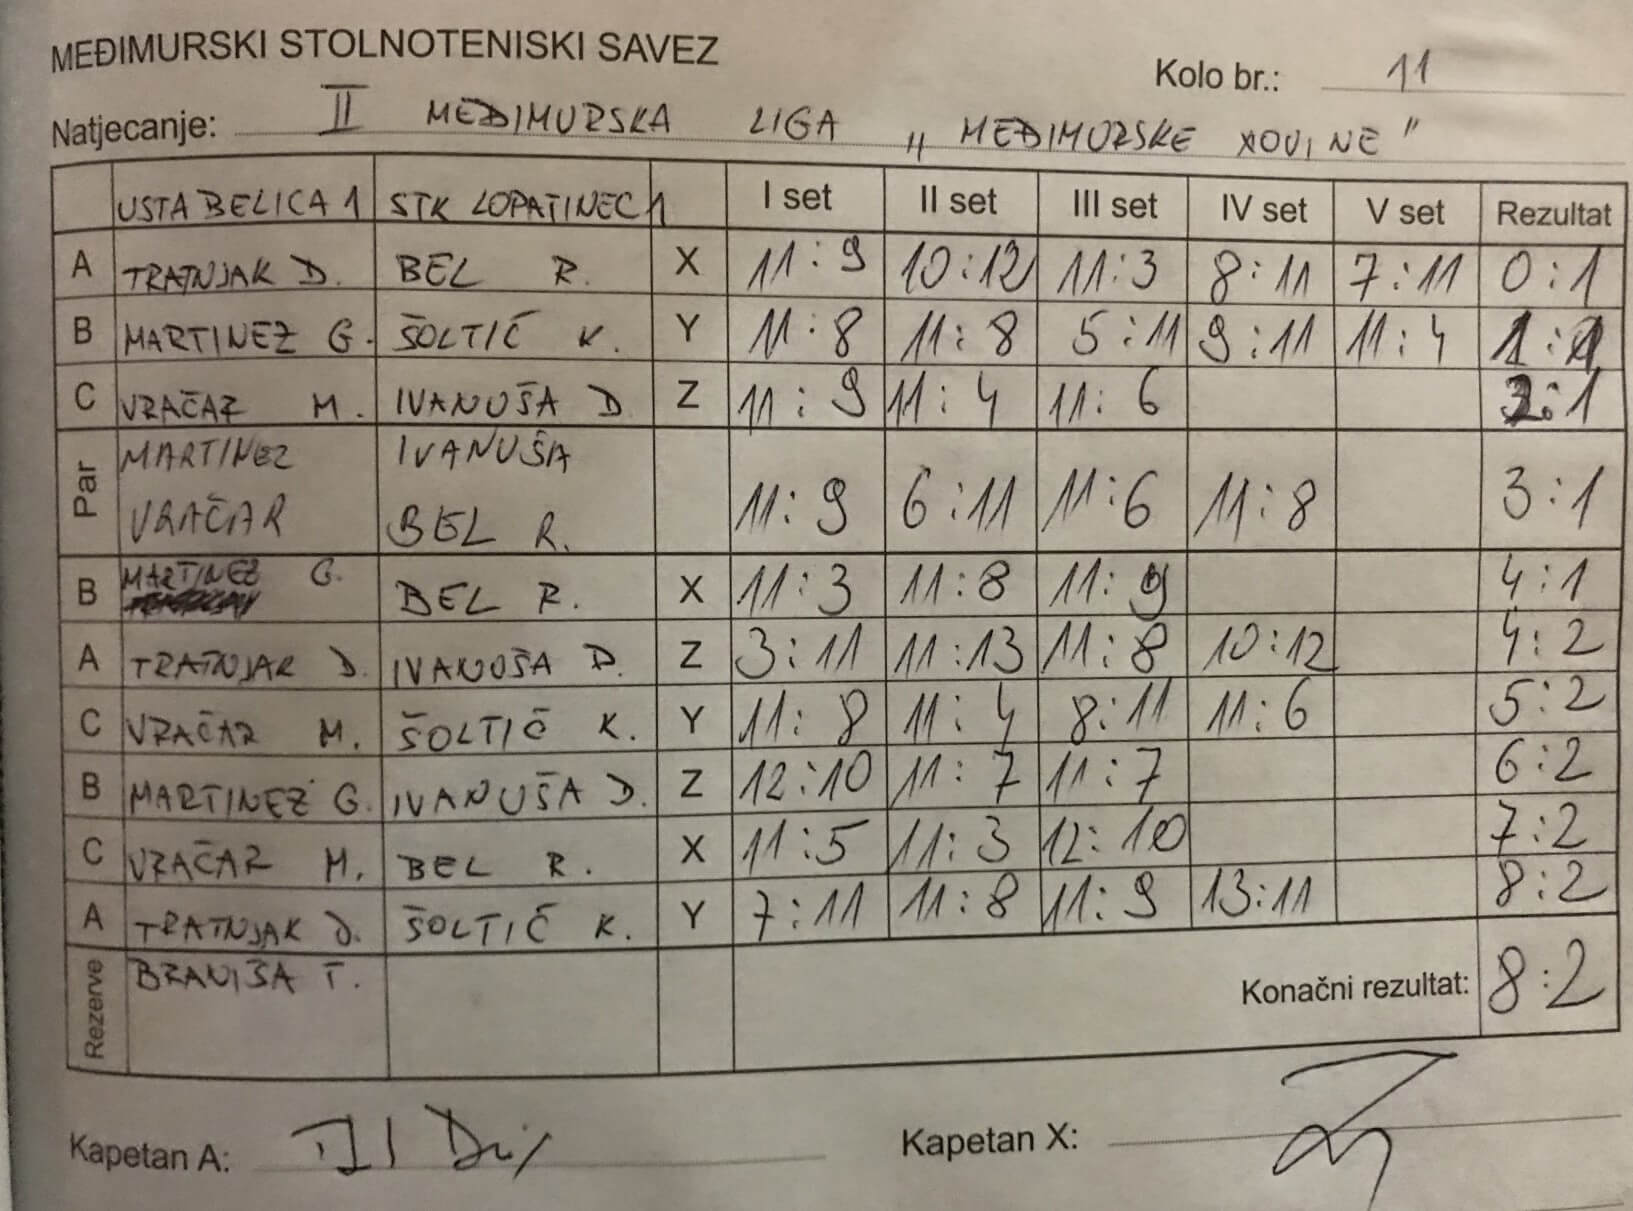 MEĐIMURSKI STOLNOTENISKI SAVEZ
Kolo br.: 11
Natjecanje: II MEĐIMURSKA LIGA "MEĐIMURSKE NOVINE"
USTA BELICA 1 STK LOPATINEC 1 I set II set III set IV set V set Rezultat
A TRATNJAK D. BEL R. X 11:9 10:12 11:3 8:11 7:11 0:1
B MARTINEZ G. ŠOLTIČ K. Y 11:8 11:8 5:11 9:11 11:4 1:1
C VRAČAR M. IVANUŠA D Z 11:9 11:4 11:6 2:1
Par MARTINEZ IVANUŠA
VRAČAR BEL R. 11:9 6:11 11:6 11:8 3:1
B MARTINEZ G. BEL R. X 11:3 11:8 11:9 4:1
A TRATNJAK D. IVANUŠA D. Z 3:11 11:13 11:8 10:12 4:2
C VRAČAR M. ŠOLTIČ K. Y 11:8 11:4 8:11 11:6 5:2
B MARTINEZ G. IVANUŠA D. Z 12:10 11:7 11:7 6:2
C VRAČAR M. BEL R. X 11:5 11:3 12:10 7:2
A TRATNJAK D. ŠOLTIČ K. Y 7:11 11:8 11:9 13:11 8:2
Rezerve BRANIŠA T.
Konačni rezultat: 8:2
Kapetan A: Kapetan X: